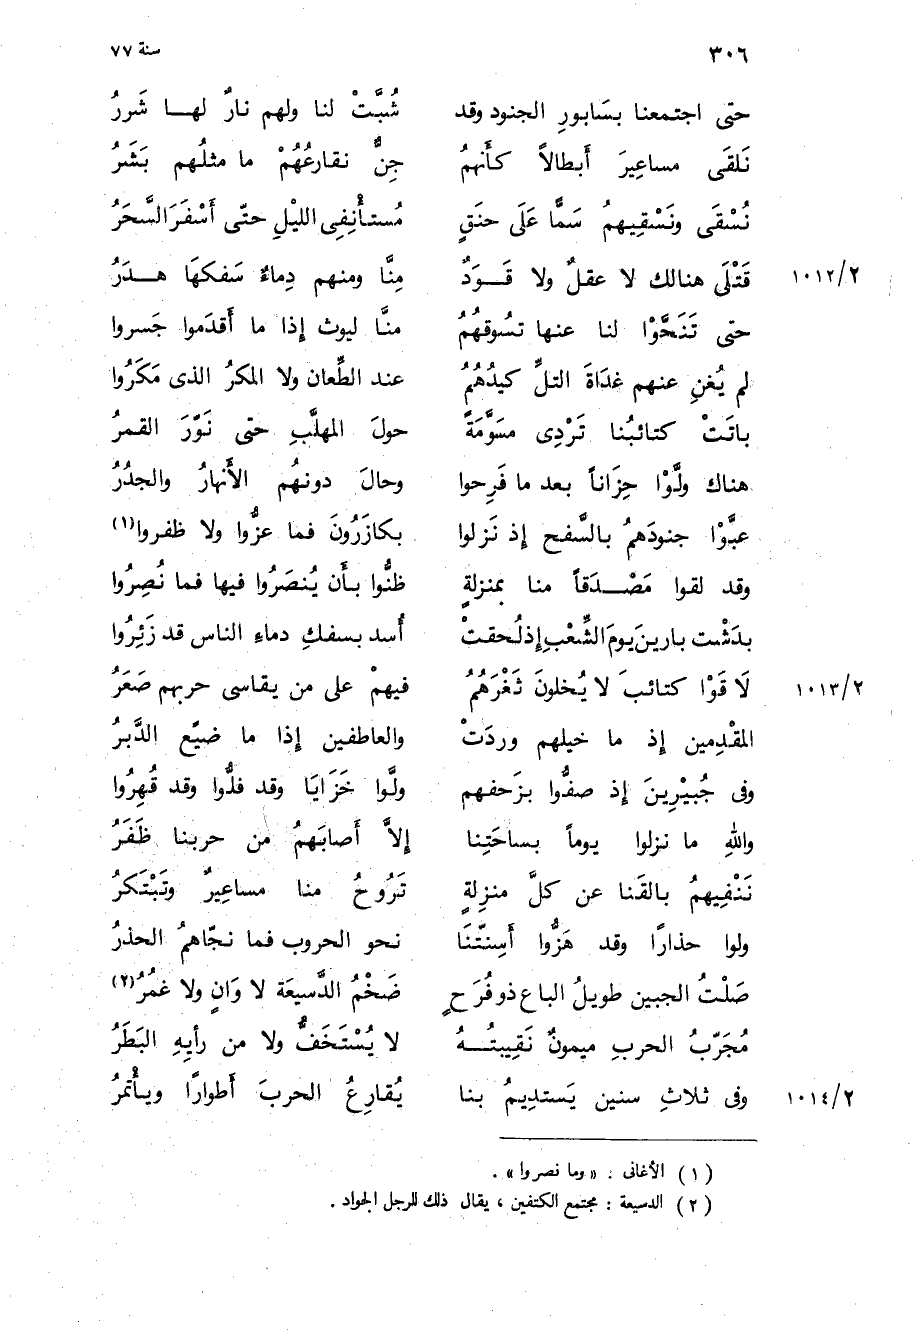 ٣٠٦ سنة ٧٧
حتى اجتمعنا بسَابورِ الجنود وقد شُبَّتْ لنا ولهم نارٌ لهــا شَررُ
نَلقَى مساعِيرَ أَبطالاً كأَنهمُ جِنٌّ نقارعُهُمْ ما مثلُهم بَشَرُ
نُسْقَى ونَسْقِيهمُ سَمًّا عَلَى حنَقٍ مُستأْنِفِى الليْلِ حتّى أَسْفَرَ السَّحَرُ
١٠١٢/٢ قَتْلَى هنالك لا عقلٌ ولا قَــوَدٌ مِنَّا ومنهم دِماءٌ سَفكهَا هــدَرُ
حتى تَنَحَّوْا لنا عنها تسُوقهُمُ منَّا ليوث إذا ما أَقدَموا جَسروا
لم يُغنِ عنهم غدَاةَ التلِّ كيدُهُمُ عند الطِّعان ولا المكرُ الذى مَكَرُوا
باتَتْ كتائبُنا تَرْدِى مسَوَّمَةً حولَ المهلَّبِ حتى نَوَّرَ القمرُ
هناك ولَّوْا حِزَاناً بعد ما فَرِحوا وحالَ دونهُم الأَنهارُ والجدُرُ
عبَّوْا جنودَهمُ بالسَّفح إذ نَزلوا بكازَرُونَ فما عزُّوا ولا ظفروا(١)
وقد لقوا مَصْــدَقاً منا بمنزلةٍ ظنُّوا بأَن يُنصَرُوا فيها فما نُصِرُوا
بدَشْت بارينَ يومَ الشِّعْبِ إذ لُحقتْ أُسد بسفكِ دماءِ الناس قد زَئِرُوا
١٠١٣/٢ لَا قَوْا كتائبَ لا يُخلونَ ثَغْرَهُمُ فيهمْ على من يقاسى حربهم صَعَرُ
المقْدِمين إذ ما خيلهم وردَتْ والعاطفين إذا ما ضيِّع الدَّبرُ
وفى جُبيْرِينَ إذ صفُّوا بزَحفهم ولَّوا خَزَايَا وقد فلُّوا وقد قُهِرُوا
واللهِ ما نزلوا يوماً بساحَتِنا إلاَّ أَصابَهمُ من حربنا ظَفَرُ
نَنْفِيهمُ بالقَنا عن كلِّ منزلةٍ تَرُوحُ منا مساعيرٌ وتَبْتَكرُ
ولوا حذارًا وقد هَزُّوا أَسِنّتَنَا نحو الحروب فما نجّاهمُ الحذرُ
صَلْتُ الجبين طويلُ الباع ذو فُرَحٍ ضَخْمُ الدَّسيعَة لا وَانٍ ولا غمُرُ(٢)
مُجَرّبُ الحربِ ميمونٌ نَقِيبتُــهُ لا يُسْتَخَفُّ ولا من رأيِهِ البَطَرُ
١٠١٤/٢ وفى ثلاثِ سنين يَستدِيمُ بنا يُقارِعُ الحربَ أَطوارًا ويأْتمرُ
(١) الأغانى : «وما نصروا» .
(٢) الدسيعة : مجتمع الكتفين ، يقال ذلك للرجل الجواد .